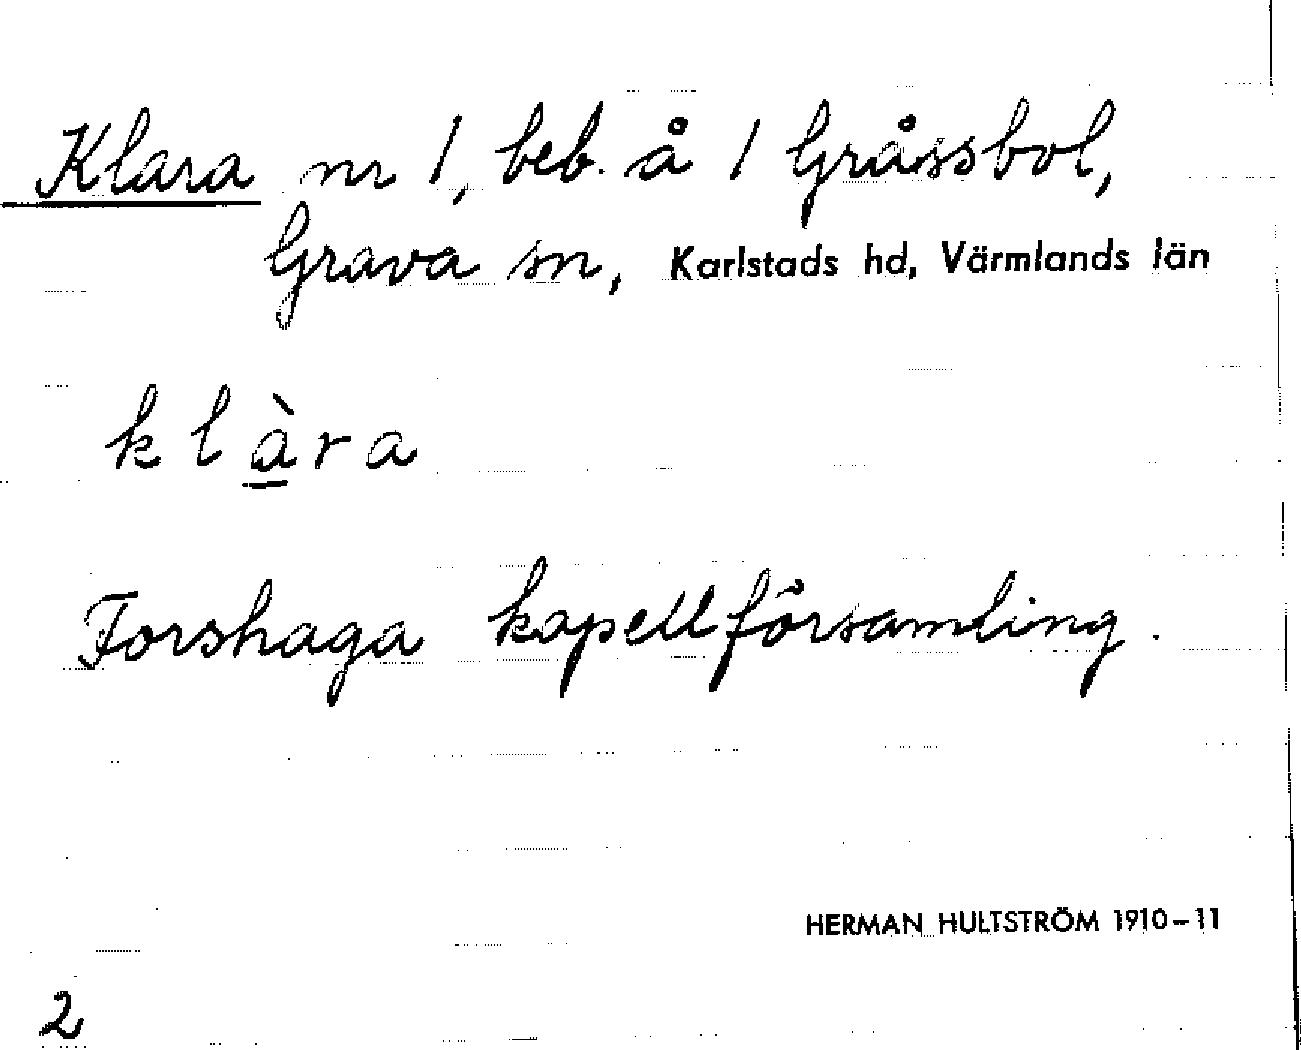 Klara nr 1, beb. å 1 Gråssbol,
Grava sn, Karlstads hd, Värmlands län
klàra
Forshaga kapellförsamling.
HERMAN HULTSTRÖM 1910-11
2